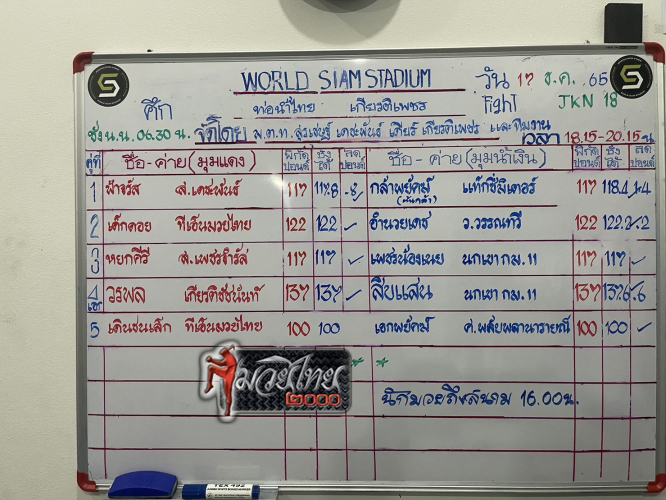 WORLD SIAM STADIUM วัน 17 ธ.ค. 65
ศึก ท่อน้ำไทย เกียรติเพชร Fight JKN 18
ชั่ง น.น. 06.30 น. จัดโดย พ.ต.ท. เดชะพันธ์ เกียรติเพชร และทีมงาน
เวลา 18.15-20.15 น.
คู่ที่ ชื่อ-ค่าย (มุมแดง) พิกัด ปอนด์ ชั่ง ได้ ลด ปอนด์ ชื่อ-ค่าย (มุมน้ำเงิน) พิกัด ปอนด์ ชั่ง ได้ ลด ปอนด์
1 ฟ้าจรัส ส.เดชะพันธ์ 117 117.8 .8 กล้าพยัคฆ์ แท็กซี่มิเตอร์ 117 118.4 1.4
2 เด็กดอย ทีเอ็นมวยไทย 122 122 ✓ อำนวยเดช ว.วรรณทวี 122 122.2 .2
3 หยกคีรี ส.เพชรจำรัส 117 117 ✓ เพชรน้องเนย นกเขา กม.11 117 117 ✓
4 เอก วรพล เกียรติชัชนันท์ 137 137 ✓ สิบแสน นกเขา กม.11 137 137.6 .6
5 เดินชนเล็ก ทีเอ็นมวยไทย 100 100 เอกพยัคฆ์ ศ.พลับพลานารายณ์ 100 100 ✓
มวยไทย
2000
นักมวยถึงสนาม 16.00 น.